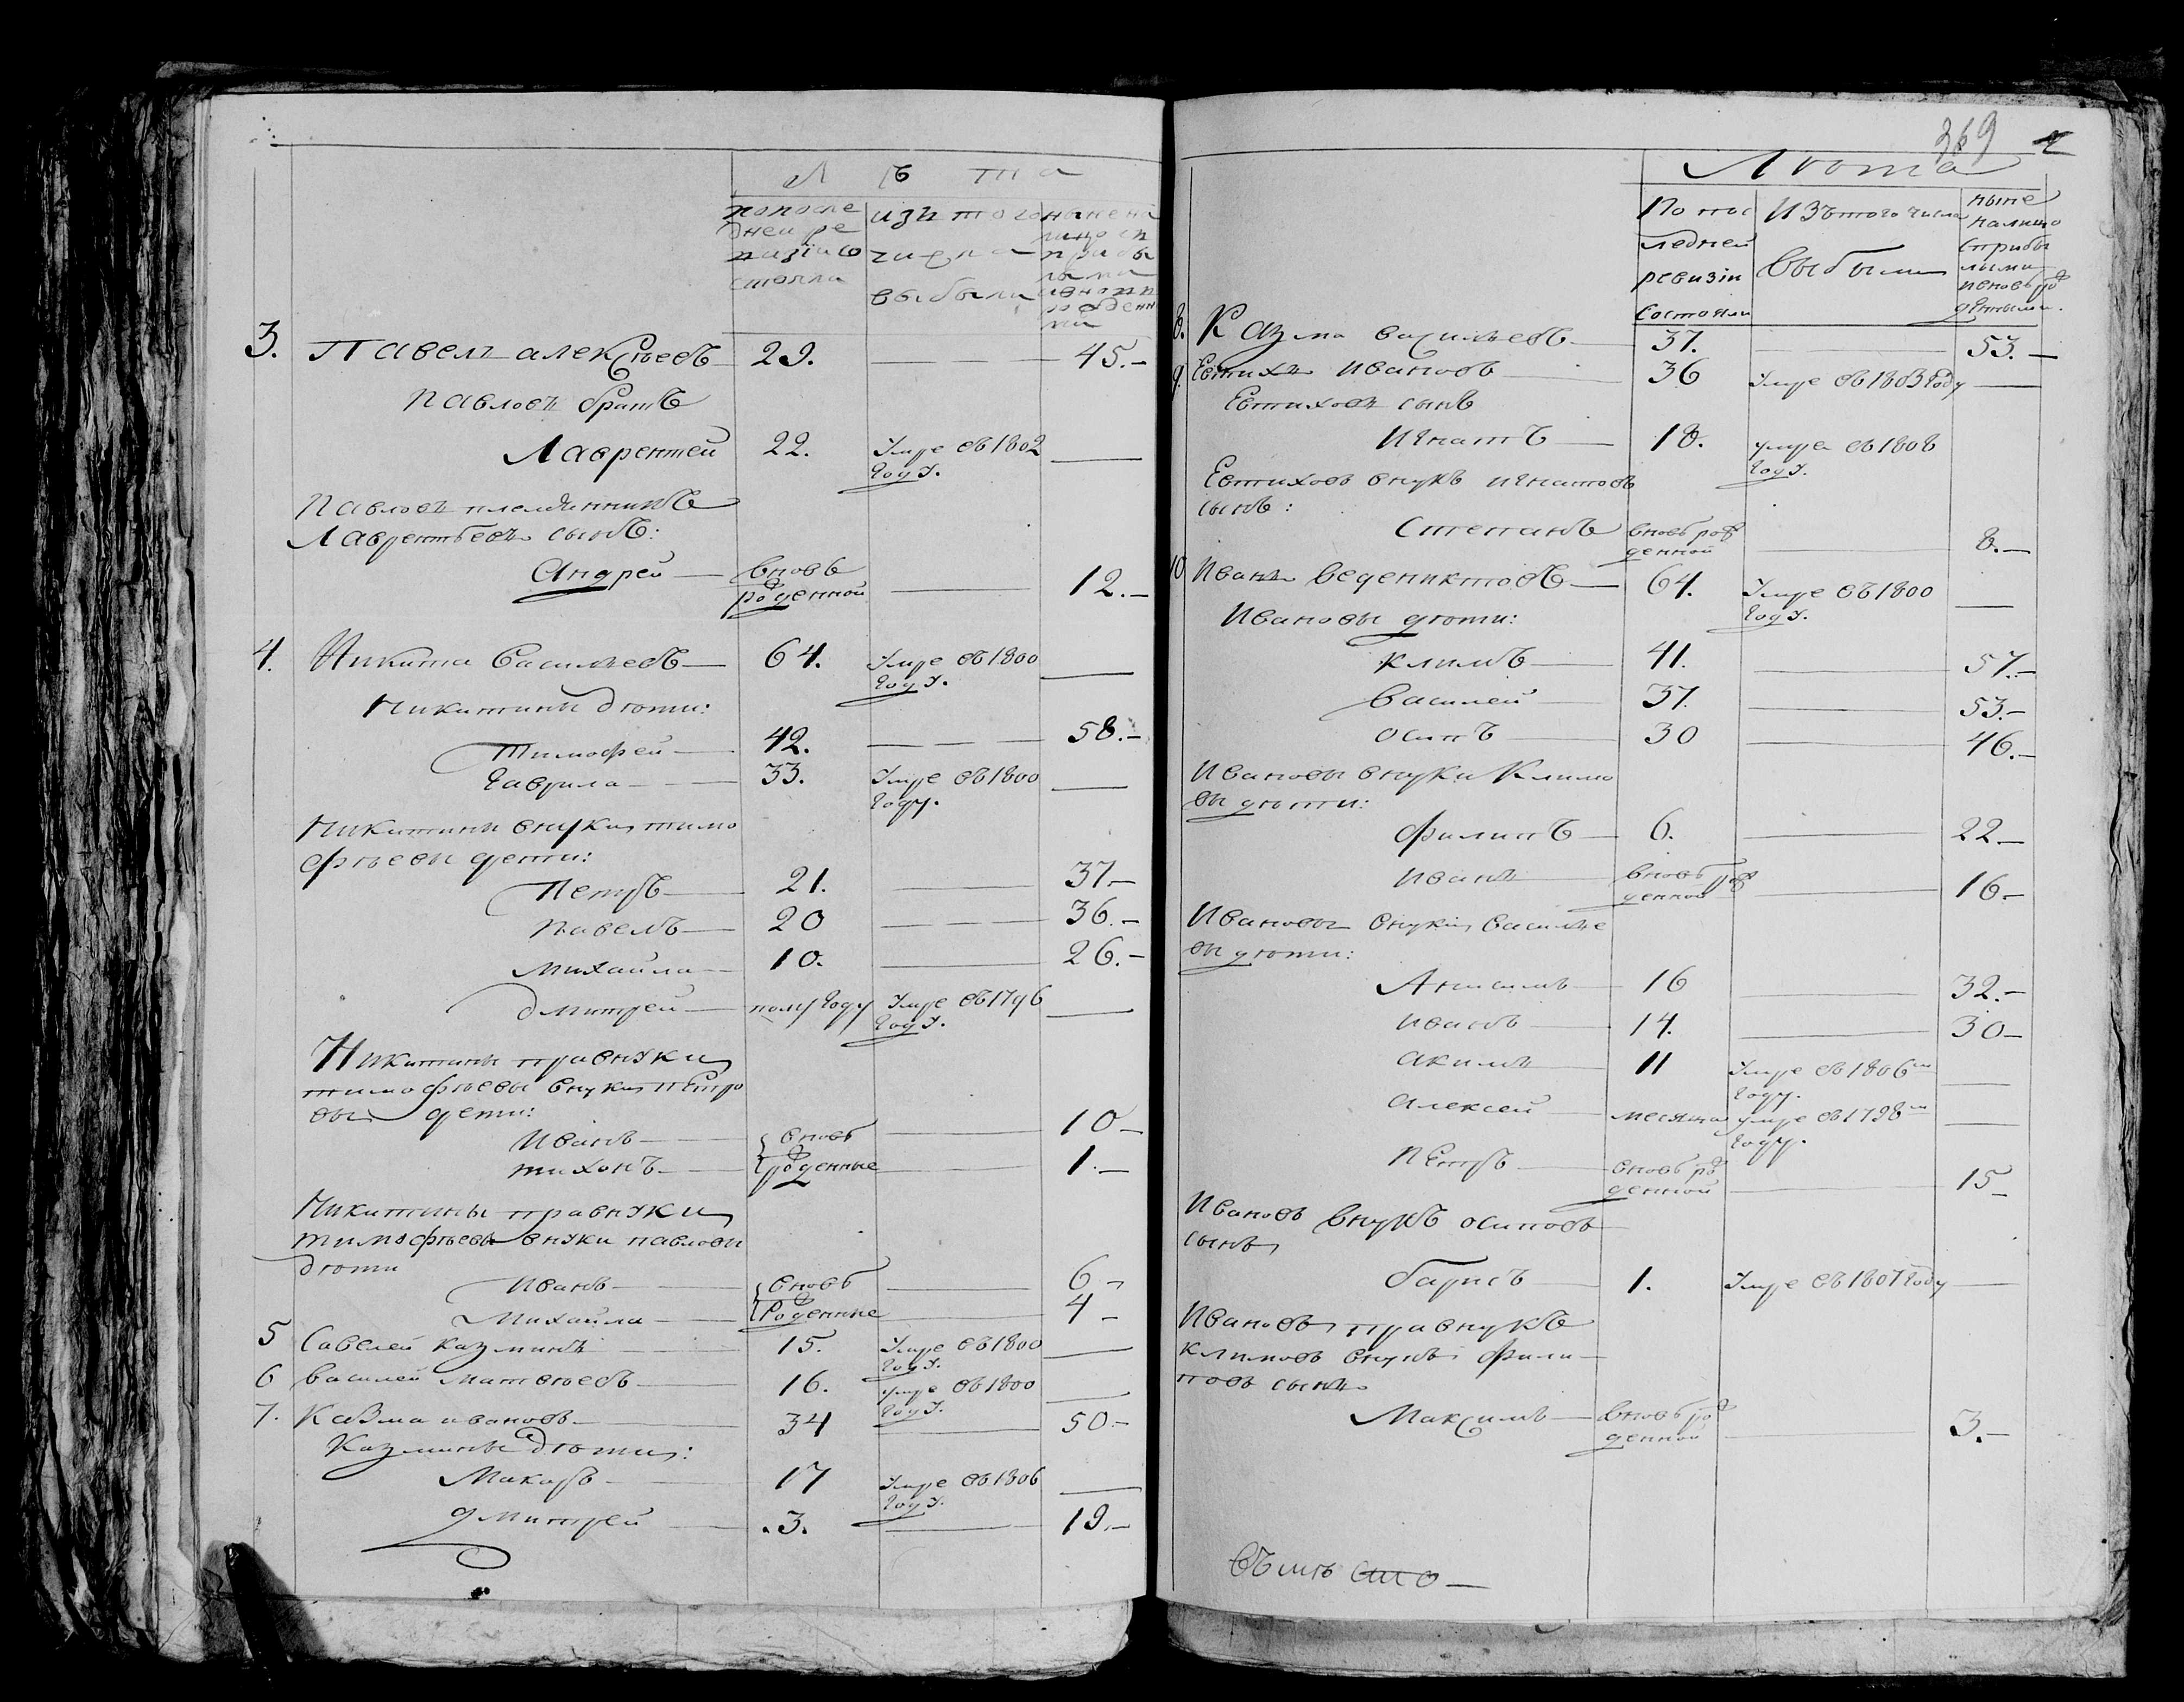 Л ѣ т а
попосле дней ре визіи со стояло | изъ того числа выбыли | ныне на лицо съ прибы лыми и вновь рожденн ми
3. Павелъ алексѣевъ 29. — 45.—
Павловъ братъ
Лаврентей 22. Умре въ 1802 году. —
Павловъ племянникъ
Лаврентьевъ сынъ:
Андрей — вновь рожденной — 12.—
4. Никита Васильевъ — 64. Умре въ 1800 году. —
Никитины дѣти:
Тимофей — 42. — 58.—
Гаврила — 33. Умре въ 1800 году. —
Никитины внуки тимо
фѣевы дети:
Петръ — 21. — 37—
павелъ — 20 — 36.—
Михайла — 10. — 26.—
дмитрей — полугоду Умре въ 1796 году. —
Никитины правнуки
тимофѣевы внуки петро
вы дети:
Иванъ — вновь — 10—
тихонъ — рожденные — 1.—
Никитины правнуки
тимофѣевы внуки павловы
дѣти
Иванъ — вновь — 6—
Михайла — рожденные — 4—
5 Савелей казминъ — 15. Умре въ 1800 году. —
6 василей матвѣевъ — 16. умре въ 1800 году. —
7. Казма ивановъ — 34 — 50.—
Казмины дѣти:
Макаръ — 17 Умре въ 1806 году. —
дмитрей — .3. — 19.—
369
Лѣта
По пос ледней ревизіи состояли | Изъ того числа выбыли | ныне налицо съ прибы лыми и вновь рож денными.
8. Казма васильевъ — 37. — 53.—
9. Евтихъ Ивановъ — 36 Умре въ 1803 году —
Евтиховъ сынъ
Игнатъ — 18. умре въ 1808 году. —
Евтиховъ внукъ игнатовъ
сынъ:
Степанъ вновь рож денной — 8.—
10 Иванъ веденихтовъ — 64. Умре въ 1800 году. —
Ивановы дѣти:
климъ — 41. — 57.—
василей — 37. — 53.—
осипъ — 30 — 46.—
Ивановы внуки Климо
вы дѣти:
филипъ — 6. — 22—
иванъ — вновь рож денной — 16—
Ивановы внуки василье
вы дѣти:
Анисимъ — 16 — 32.—
иванъ — 14. — 30—
акимъ — 11 Умре въ 1806м году. —
алексей — месяца умре въ 1798м году. —
петръ — вновь рож денной — 15—
Ивановъ внукъ осиповъ
сынъ
барисъ — 1. Умре въ 1807 году —
Ивановъ правнукъ
климовъ внукъ фили-
повъ сынъ
Максимъ — вновь рож денной — 3.—